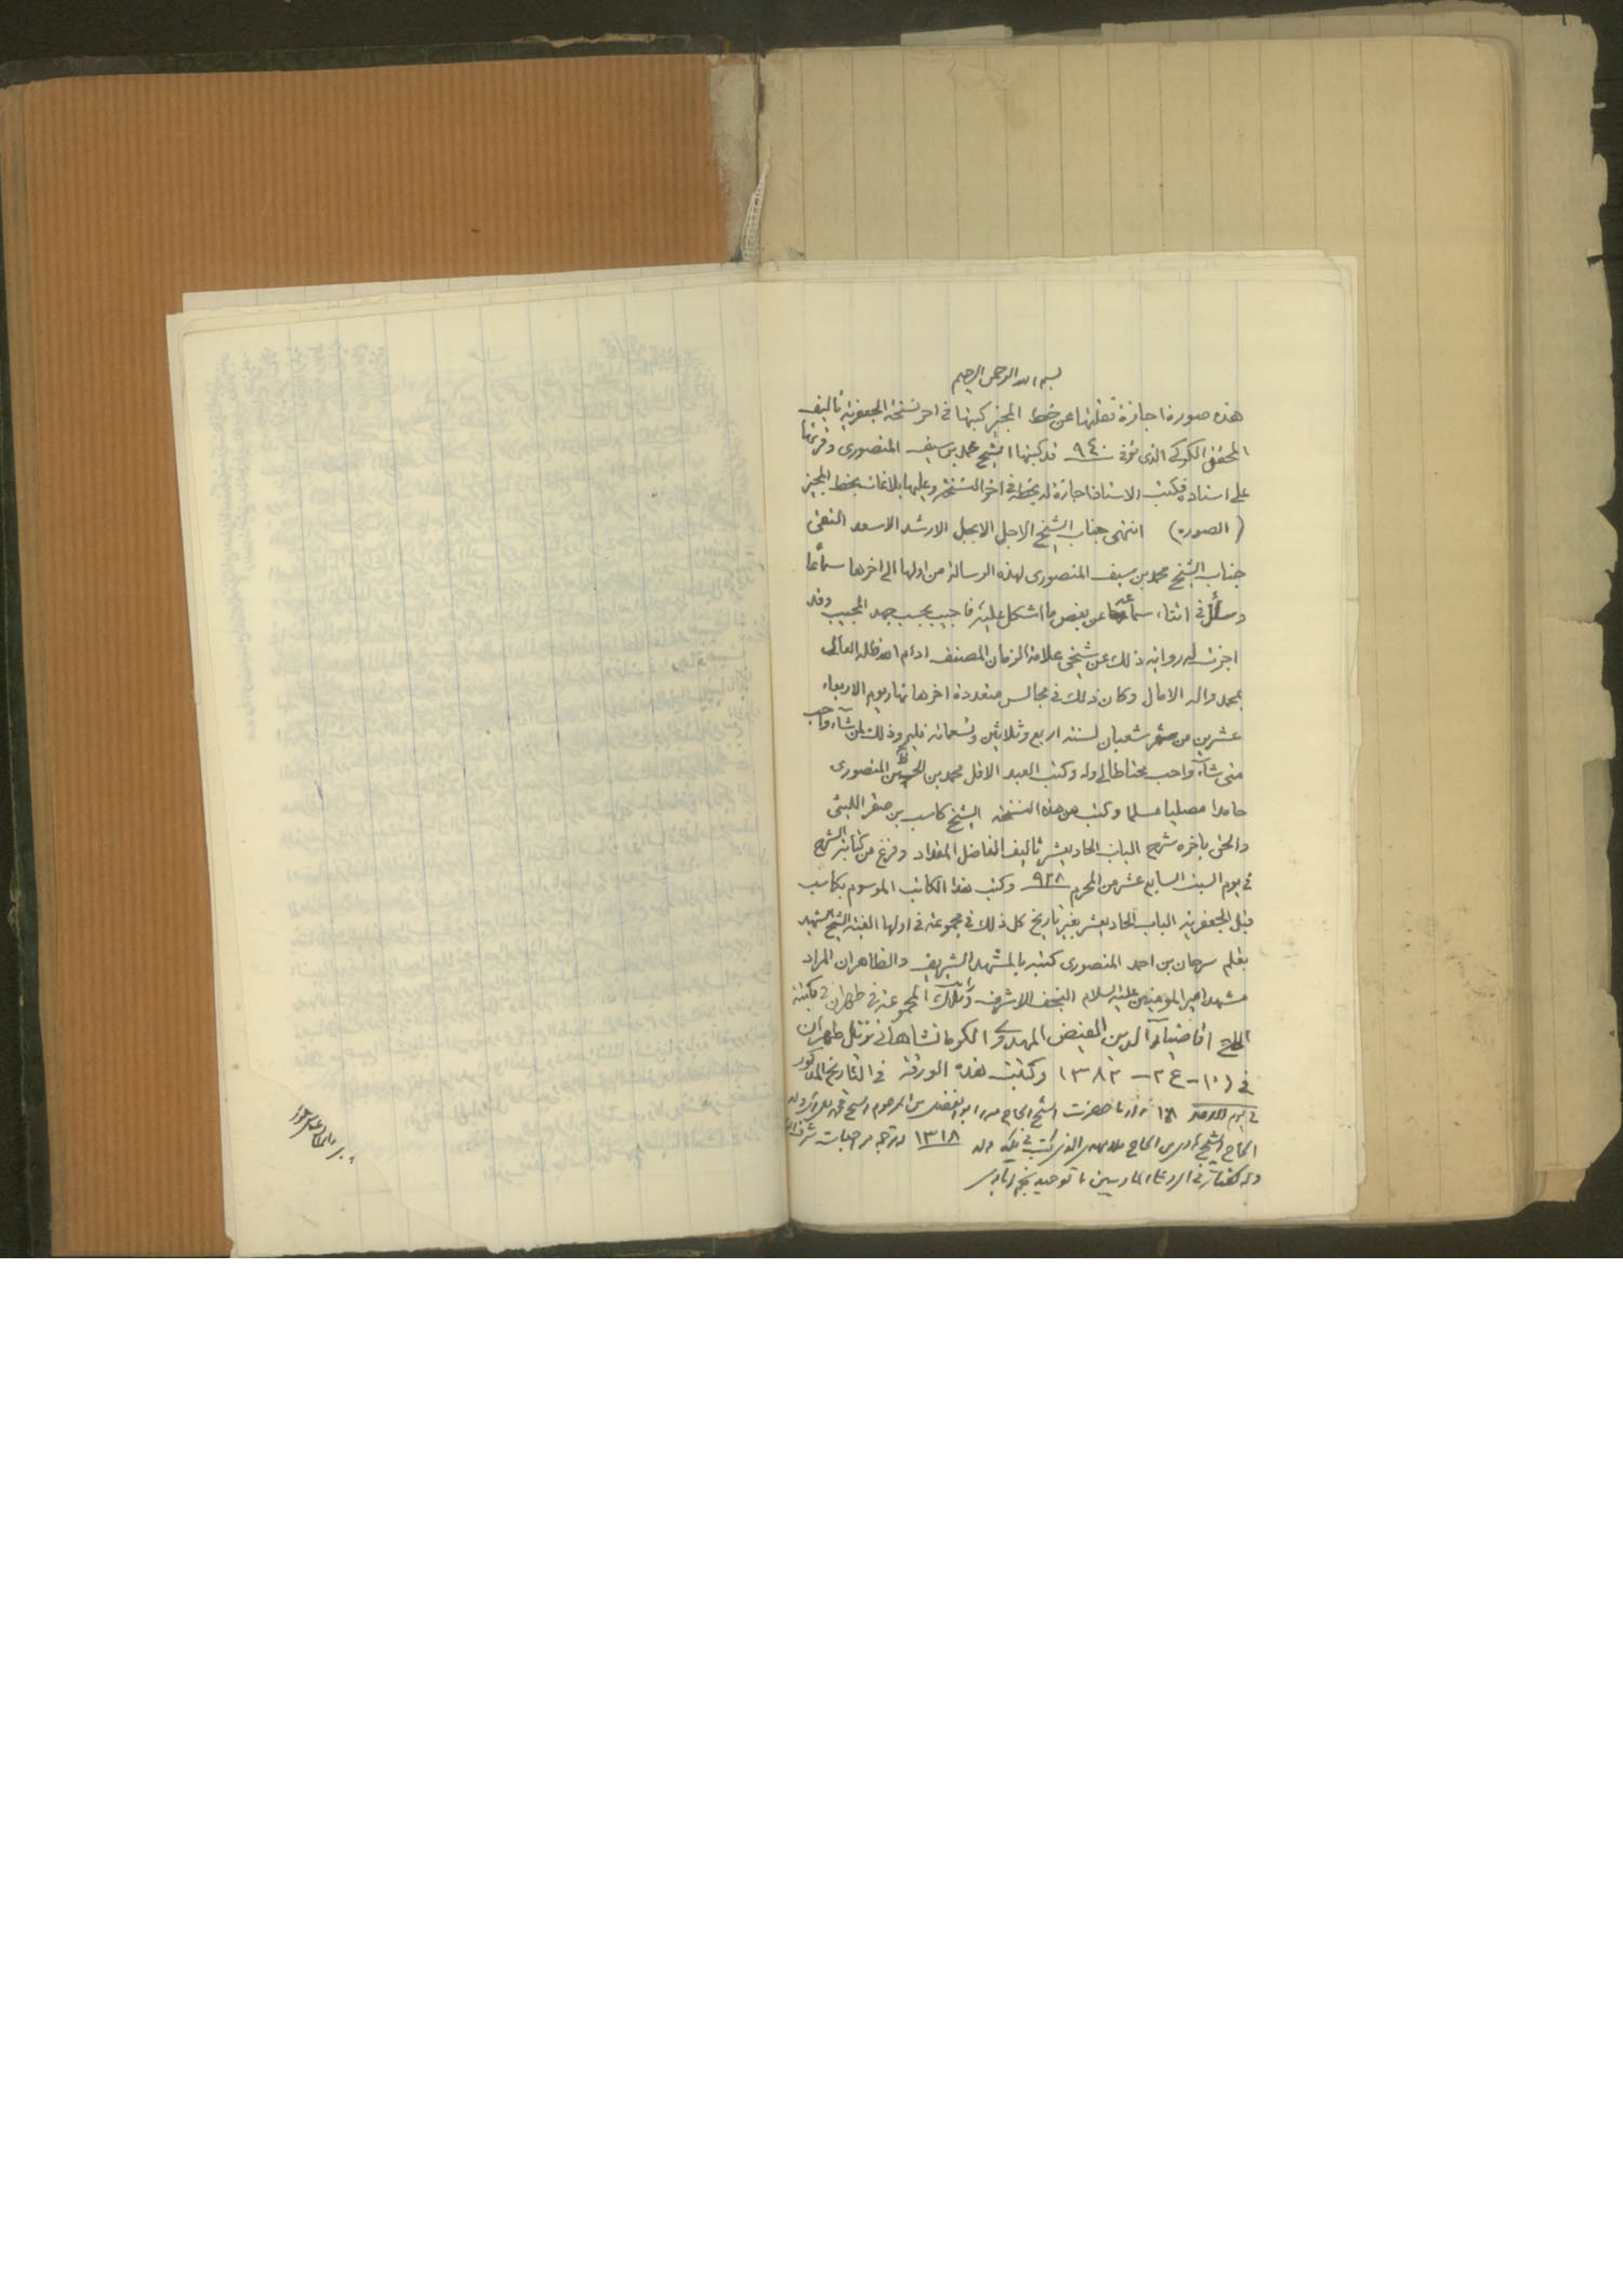 بسم الله الرحمن الرحيم
هذه صورة اجازة نقلتها عن خط المجيز كتبها في اخر نسخة الجعفرية تأليف
المحقق الكركي الذي توفى ٩٤٠ قد كتبها الشيخ محمد بن سيف المنصوري وقرئها
على استاده فكتب الاستاذ اجازة له بخطه في اخر النسخة وعليها بلاغات بخط المجيز
(الصورة) انتهى جناب الشيخ الاجل الابجل الارشد الاسعد التقي
جناب الشيخ محمد بن سيف المنصوري لهذه الرسالة من اولها الى اخرها سماعا
وسأل في اثناء سماعه عن بعض ما اشكل عليه فاجيب بحسب جهد المجيب وقد
اجزت له رواية ذلك عن شيخي علامة الزمان المصنف ادام الله ظله العالي
بمحمد واله الامال وكان ذلك في مجالس متعددة اخرها نهار يوم الاربعاء
عشرين من شهر شعبان لسنة اربع وثلاثين وتسعمائة فليرو ذلك لمن شآء واحب
متى شآء واحب محتاطا لي وله وكتب العبد الاقل محمد بن الحسين المنصوري
حامدا مصليا مسلما وكتب من هذه النسخة الشيخ كاسب بن صقر الليثي
والحق باخره شرح الباب الحاديعشر تأليف الفاضل المقداد وفرغ من كتابة الشرح
في يوم السبت السابع عشر من المحرم ٩٣٨ وكتب هذا الكاتب الموسوم بكاسب
قبل الجعفرية الباب الحاديعشر بغير تاريخ كل ذلك في مجموعة في اولها الفية الشيخ الشهيد
بقلم سرحان بن احمد المنصوري كتبه بالمشهد الشريف والظاهر ان المراد
مشهد امير المؤمنين عليه السلام النجف الاشرف رأيت تلك المجموعة في طهران في مكتبة
الحاج اقا ضيآء الدين الفيض المهدوي الكرمانشاهاني نزيل طهران
في (١٠ - ع ٢ - ١٣٨٢ وكتبت هذه الورقة في التاريخ المذكور
في يوم الاحد زارنا حضرت الشيخ الحاج ميرزا ابو الفضل بن المرحوم الشيخ
الحاج الشيخ الحاج ملا ١٣١٨